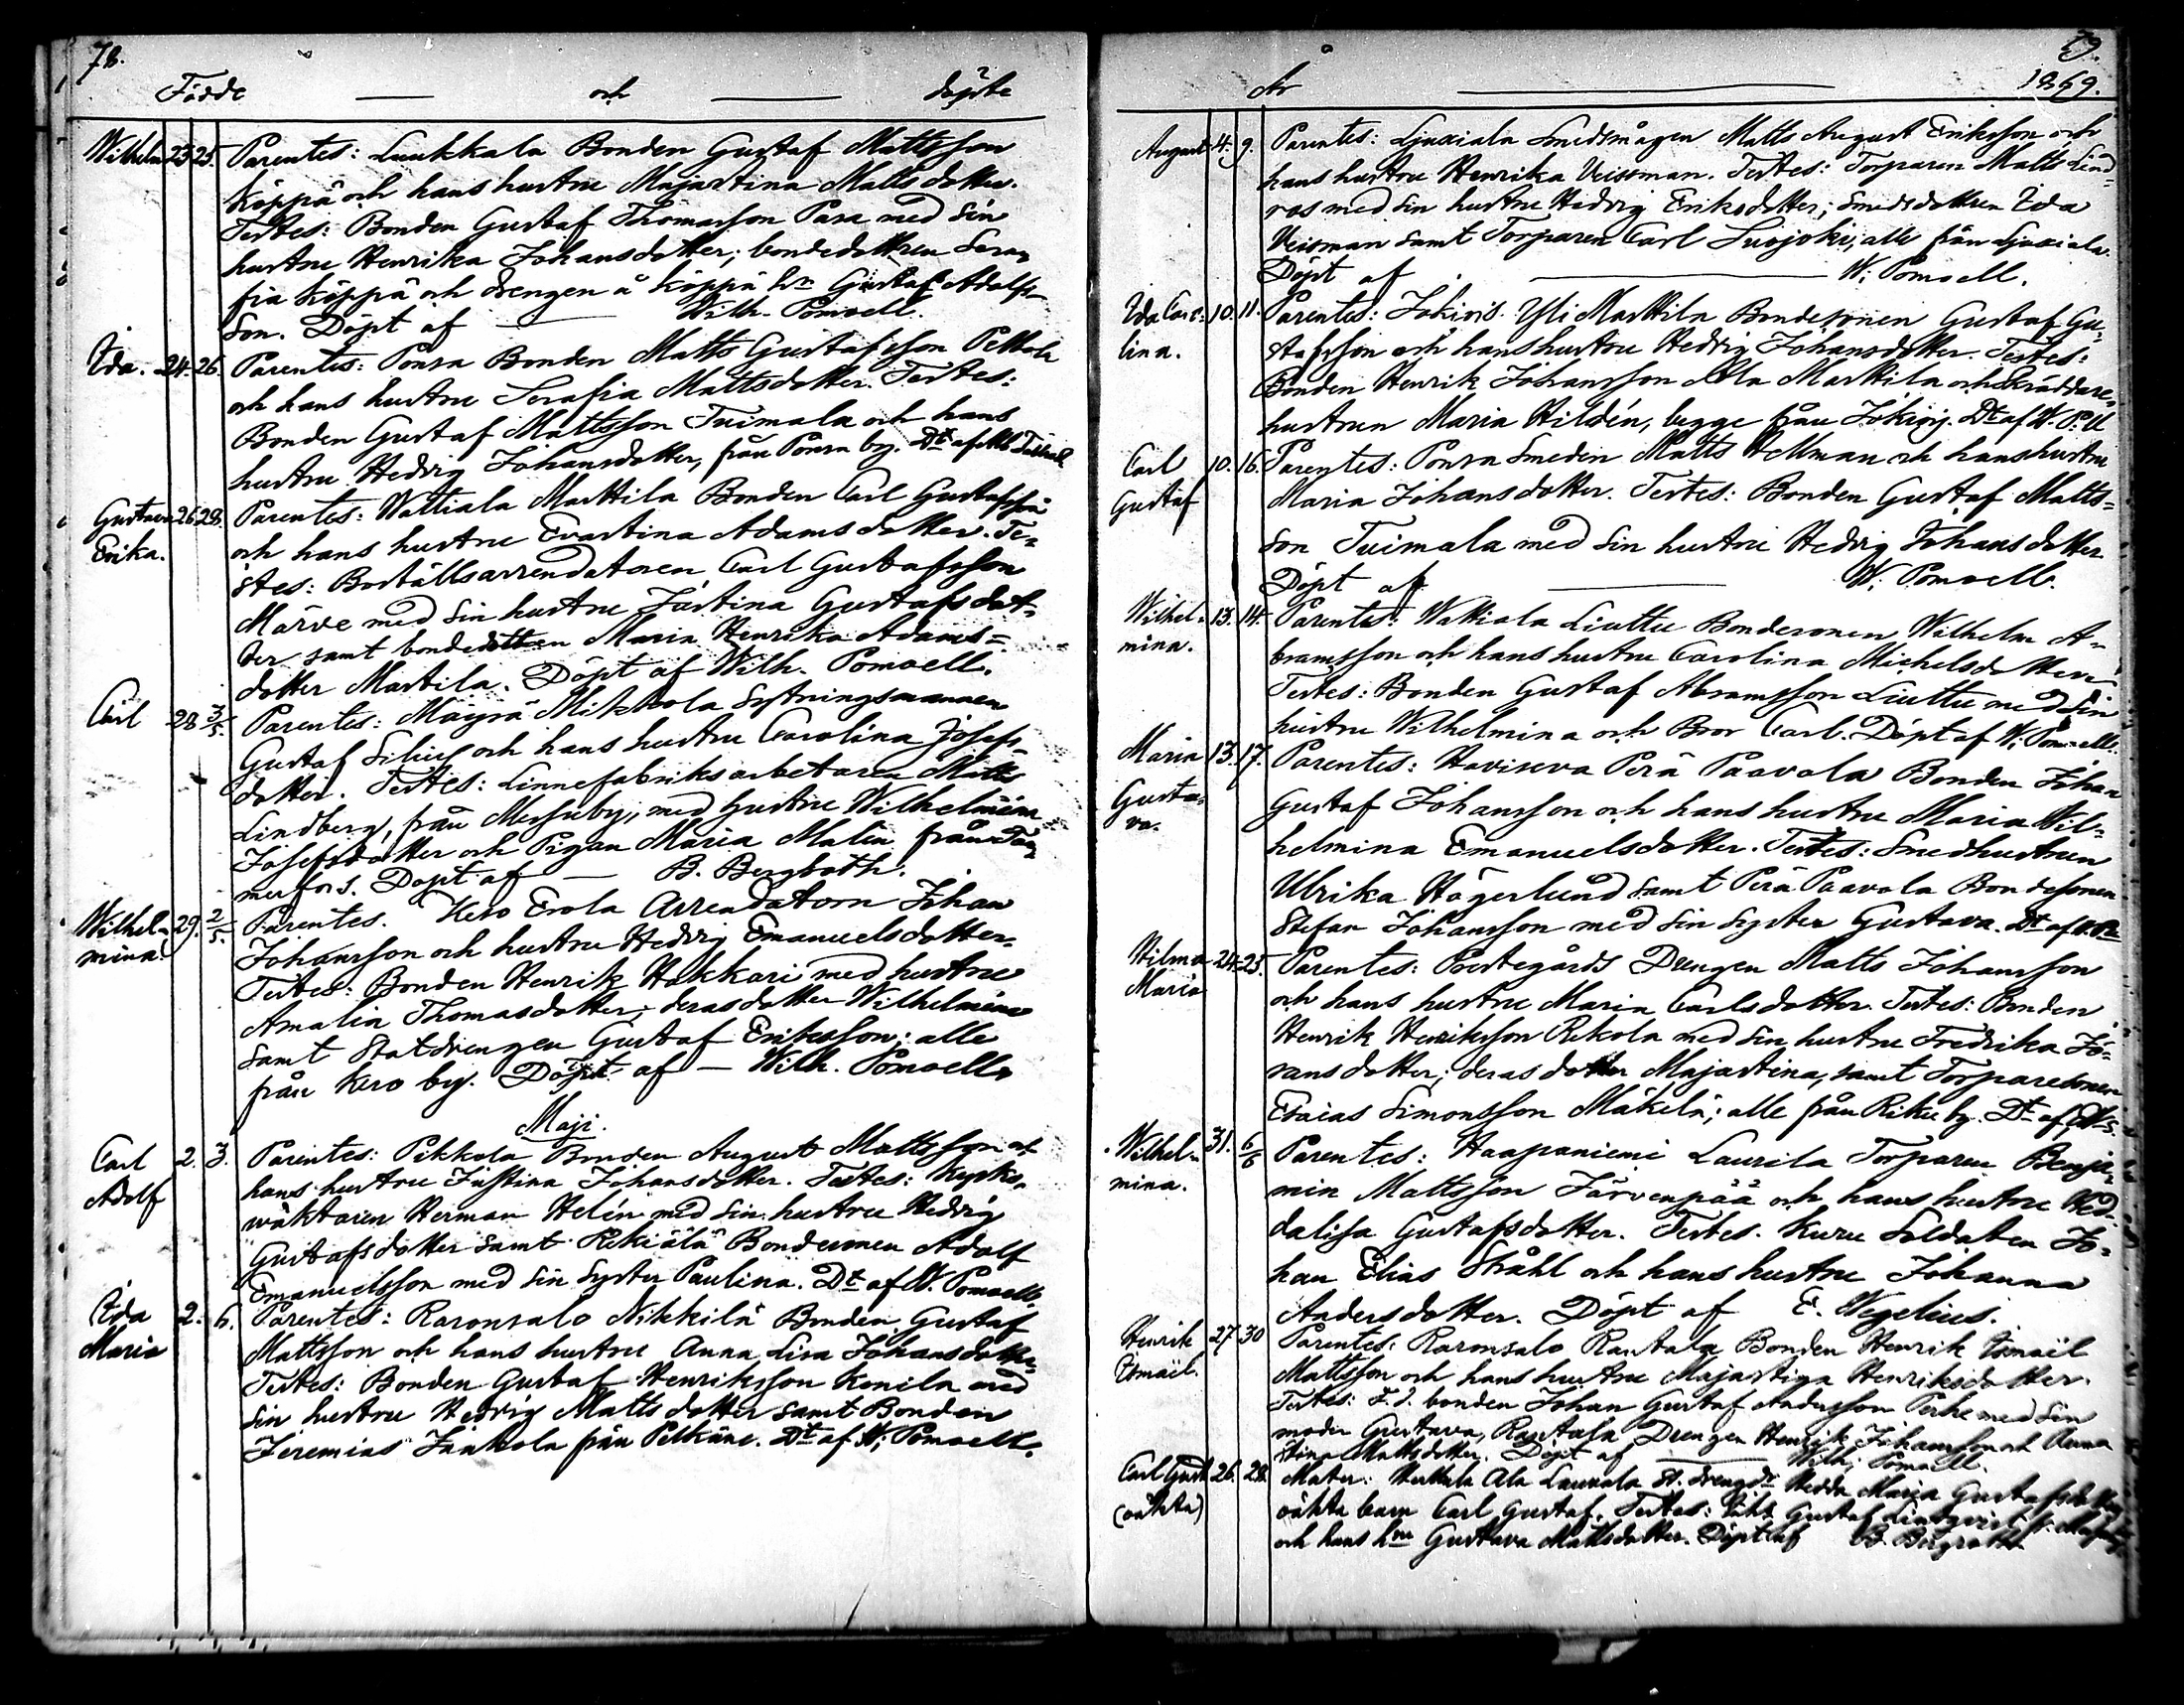 78.
Födde — och — döpte
Wilhelm 23. 25. Parentes: Luukkala Bonden Gustaf Mattsson
Köppä och hans hustru Majastina Mattsdotter.
Testes: Bonden Gustaf Thomasson Para med sin
hustru Henrika Johansdotter; bondedottren Sera-
fia Köppä och drengen å Köppä hn Gustaf Adolfs-
son. Döpt af — Wilh. Pomoell.
Ida. 24. 26. Parentes: Ponsa Bonden Matts Gustafsson
och hans hustru Serafia Mattsdotter. Testes:
Bonden Gustaf Mattsson Tuimala och hans
hustru Hedvig Johansdotter, från Ponsa by. Dt af
Gustava 26. 28. Parentes: Wattiala Marttila Bonden Carl Gustafsson
Erika. och hans hustru Evastina Adamsdotter. Te-
stes: Boställsarrendatoren Carl Gustafsson
Märve med sin hustru Justina Gustafsdot-
ter samt bondedottren Maria Henrika Adams-
dotter Martila. Döpt af Wilh. Pomoell.
Carl 28. 3/5. Parentes: Mäyrä Mikkola Sytningsmannen
Gustaf och hans hustru Carolina Josefs-
dotter. Testes: Linnefabriksarbetaren Matts
Lindberg, från Messuby, med hustru Wilhelmina
Josefsdotter och Pigan Maria Malin från Tam-
merfors. Döpt af — B. Bergroth.
Wilhel- 29. 2/5. Parentes. Kero Erola Arrendatorn Johan
mina. Johansson och hustru Hedvig Emanuelsdotter.
Testes: Bonden Henrik Hakkari med hustru
Amalia Thomasdotter; deras dotter Wilhelmina
samt Statdrengen Gustaf Eriksson; alle
från Kero by. Döpt af — Wilh. Pomoell.
Maji.
Carl 2. 3. Parentes: Pikkola Bonden August Mattsson och
Adolf hans hustru Justina Johansdotter. Testes: Kyrko-
wäktaren Herman Helén med sin hustru Hedvig
Gustafsdotter samt Rekiälä Bondesonen Adolf
Emanuelsson med sin syster Paulina. Dt af W. Pomoell.
Ida 2. 6. Parentes: Raronsalo Nikkilä Bonden Gustaf
Maria Mattsson och hans hustru Anna Lisa Johansdotter.
Testes: Bonden Gustaf Henriksson Konila med
sin hustru Hedvig Mattsdotter samt Bonden
Jeremias Jankola från Pelkäne. Dt af W. Pomoell.
79.
År — 1869.
August 4. 9. Parentes: Ljuxiala Smedsmågen Matts August Eriksson och
hans hustru Henrika Veissman. Testes: Torparen Matts Lind-
ros med sin hustru Hedvig Eriksdotter; Smedsdottren Ida
Veisman samt Torparen Carl Suojoki; alle från Ljuxiala.
Döpt af — W. Pomoell.
Ida Caro- 10. 11. Parentes: Jokiois Yli Marttila Bondesonen Gustaf Gu-
lina. stafsson och hans hustru Hedvig Johansdotter. Testes:
Bonden Henrik Johansson Ala Marttila och Skräddare-
hustrun Maria Hildén, begge från Jokioij. Dt af W. P.ll
Carl 10. 16. Parentes: Ponsa Smeden Matts Hellman och hans hustru
Gustaf Maria Johansdotter. Testes: Bonden Gustaf Matts-
son Tuimala med sin hustru Hedvig Johansdotter
Döpt af — W. Pomoell.
Wilhel- 13. 14. Parentes: Wattiala Liuttu Bondesonen Wilhelm A-
mina. bramsson och hans hustru Carolina Michelsdotter.
Testes: Bonden Gustaf Abramsson Liuttu med sin
hustru Wilhelmina och Bror Carl. Döpt af W. Pomoell.
Maria 13. 17. Parentes: Haviseva Perä Paavola Bonden Johan
Gusta- Gustaf Johansson och hans hustru Maria Wil-
va. helmina Emanuelsdotter. Testes: Smedhustrun
Ulrika Högerlund samt Perä Paavola Bondesonen
Stefan Johansson med sin syster Gustava. Dt af
Hilma 24. 25. Parentes: Prestegårds Drengen Matts Johansson
Maria och hans hustru Maria Carlsdotter. Testes: Bonden
Henrik Henriksson Rekola med sin hustru Fredrika Jö-
ransdotter; deras dotter Majastina, samt Torparesonen
Esaias Simonsson Mäkelä; alle från Riku by. Dt af
Wilhel- 31. 6/6 Parentes: Haapaniemi Laurila Torparen Benja-
mina. min Mattsson Järvenpää och hans hustru Hed-
dalisa Gustafsdotter. Testes. Kuru Soldaten Jo-
han Elias Ståhl och hans hustru Johanna
Andersdotter. Döpt af E. Wegelius.
Henrik 27. 30 Parentes: Raronsalo Rantala Bonden Henrik Ismaël
Ismaël. Mattsson och hans hustru Majastina Henriksdotter.
Testes: F.d. bonden Johan Gustaf Andersson Perhe med sin
moder Gustava, Rantala Drengen Henrik Johansson och Anna
Stina Mattsdotter. Döpt af — Wilh. Pomoell.
Carl Gust. 26. 28. Mater: Ala Laurala Hedda Maria Gustafsdotter
(oäkta) oäkta barn Carl Gustaf. Testes: Gustaf Lindqvist
och hans hru Gustava Mattsdotter. Döpt af B. Bergroth